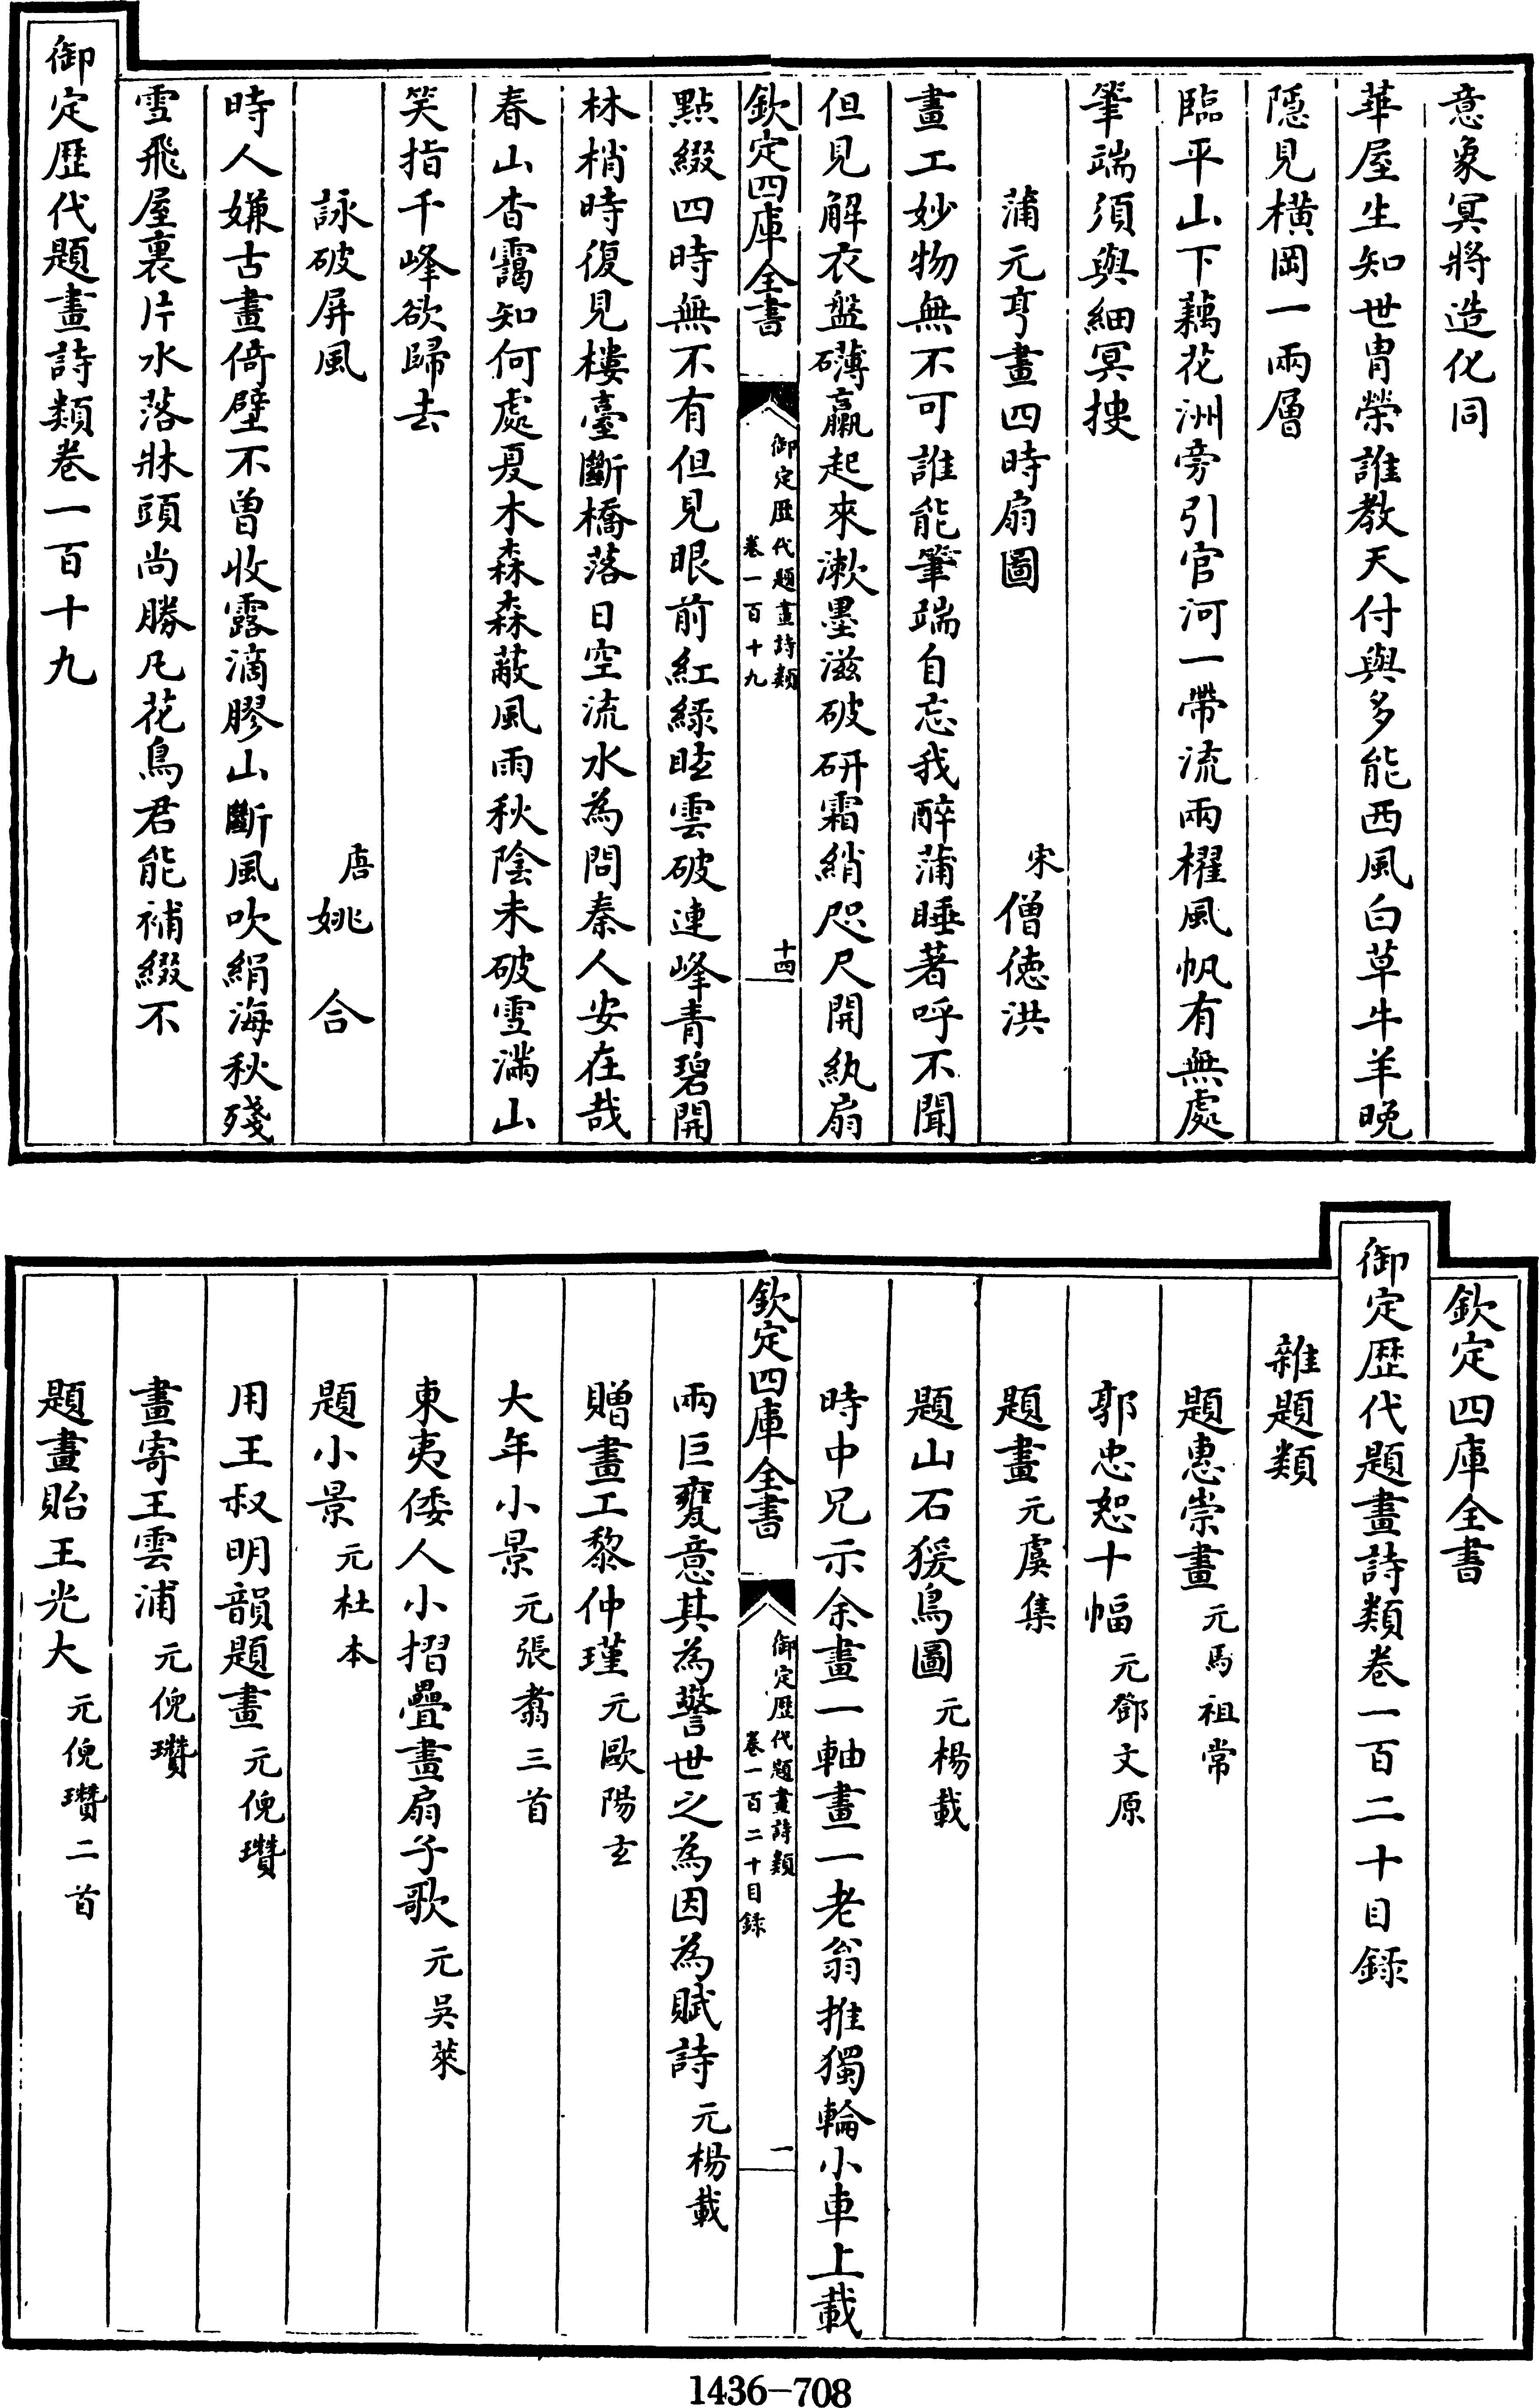 意象冥將造化同
華屋生知世胄榮誰教天付與多能西風白草牛羊晚
隱見橫岡一兩層
臨平山下藕花洲旁引官河一帶流兩櫂風帆有無處
筆端須與細冥搜
蒲元亨畫四時扇圖 宋僧德洪
畫工妙物無不可誰能筆端自忘我醉蒲睡著呼不聞
但見解衣盤礴臝起來漱墨滋破研霜綃咫尺開紈扇
欽定四庫全書 御定歴代題畫詩類 卷一百十九 十四
點綴四時無不有但見眼前紅綠眩雲破連峰青碧開
林梢時復見樓臺斷橋落日空流水為問秦人安在哉
春山杳靄知何處夏木森森蔽風雨秋陰未破雪滿山
笑指千峰欲歸去
詠破屏風 唐姚合
時人嫌古畫倚壁不曽收露滴膠山斷風吹絹海秋殘
雪飛屋裏片水落牀頭尚勝凡花鳥君能補綴不
御定歴代題畫詩類卷一百十九
欽定四庫全書
御定歴代題畫詩類卷一百二十目録
雜題類
題惠崇畫 元馬祖常
郭忠恕十幅 元鄧文原
題畫 元虞集
題山石猨鳥圖 元楊載
時中兄示余畫一軸畫一老翁推獨輪小車上載
欽定四庫全書 御定歴代題畫詩類 卷一百二十目録 一
兩巨甕意其為警世之為因為賦詩 元楊載
贈畫工黎仲瑾 元歐陽玄
大年小景 元張翥三首
東夷倭人小摺疊畫扇子歌 元吳萊
題小景 元杜本
用王叔明韻題畫 元倪瓚
畫寄王雲浦 元倪瓚
題畫貽王光大 元倪瓚二首
1436-708